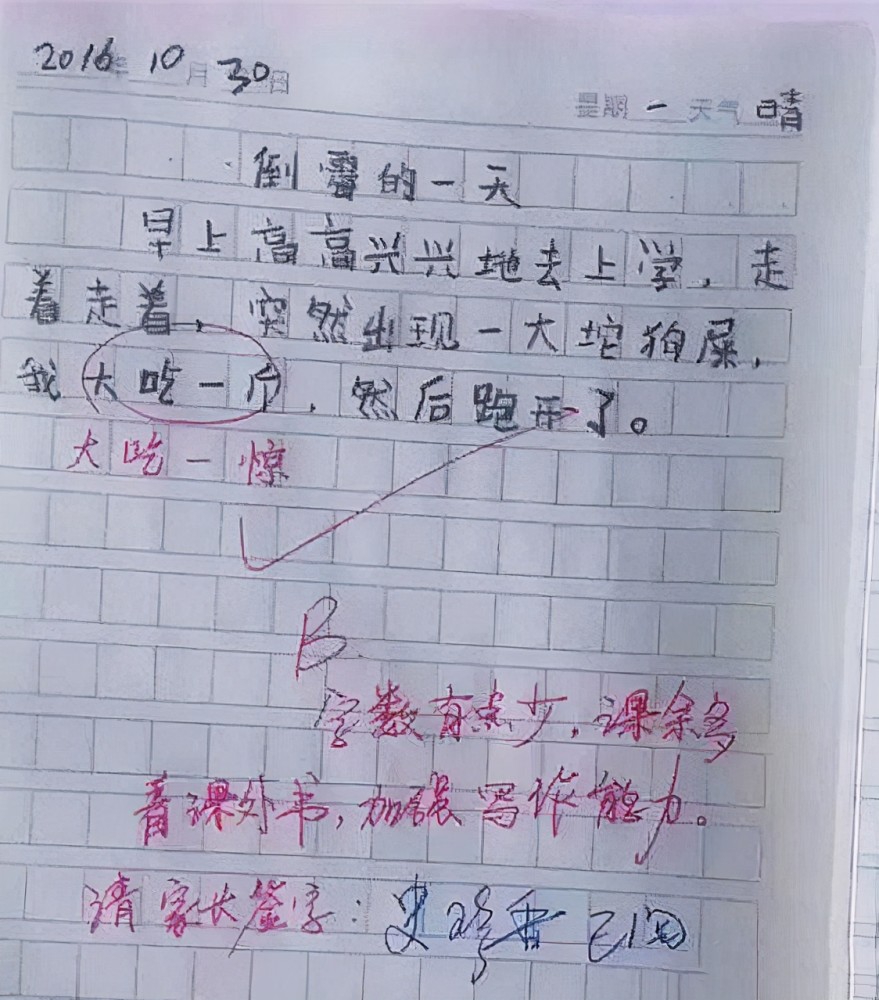 2016年 10月 30日
星期一 天气 晴
倒霉的一天
早上高高兴兴地去上学，走
着走着，突然出现一大坨狗屎，
我大吃一斤，然后跑开了。
大吃一惊
B
字数有点少，课余多
看课外书，加强写作能力。
请家长签字：史珍香 已阅